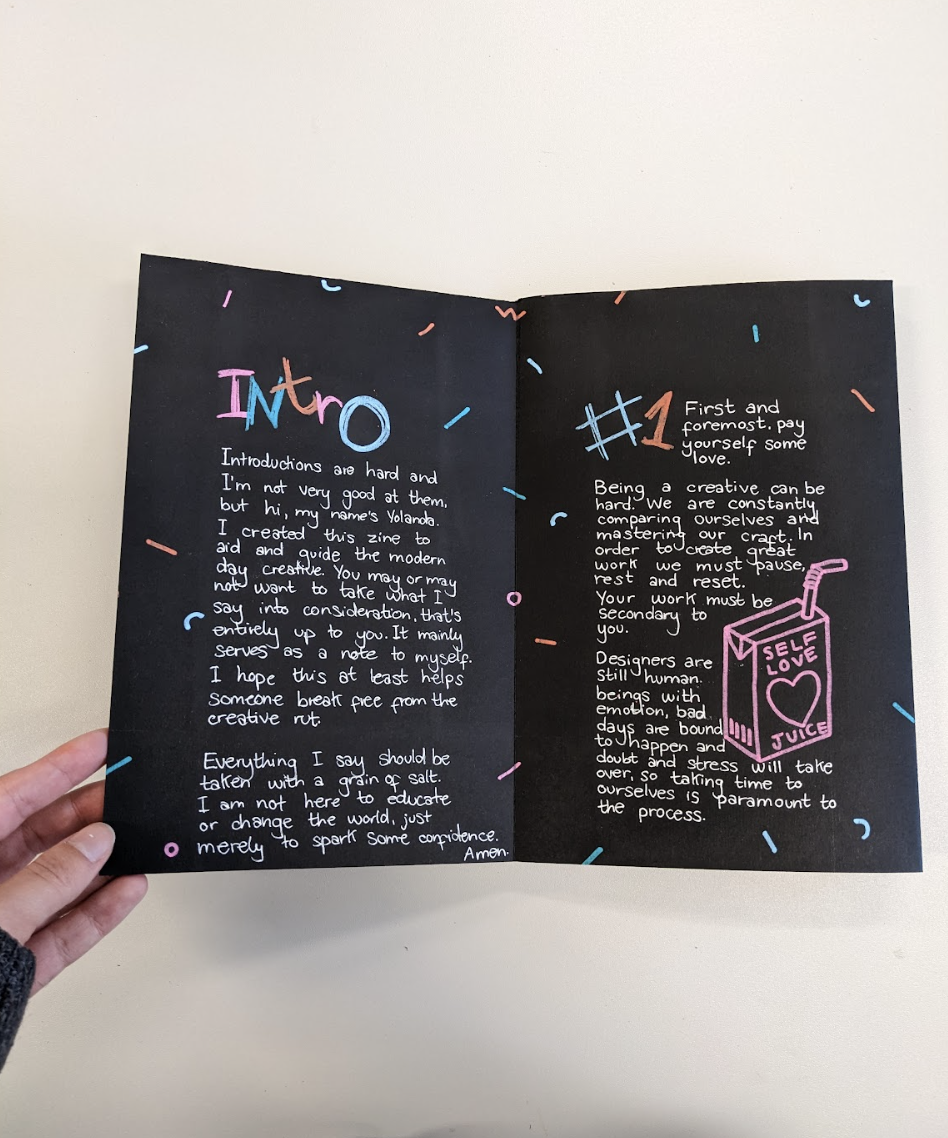 Intro
Introductions are hard and
I'm not very good at them,
but hi, my name's Yolanda.
I created this zine to
aid and guide the modern
day creative. You may or may
not want to take what I
say into consideration, that's
entirely up to you. It mainly
serves as a note to myself.
I hope this at least helps
someone break free from the
creative rut.
Everything I say should be
taken with a grain of salt.
I am not here to educate
or change the world, just
merely to spark some confidence.
Amen.
#1
First and
foremost, pay
yourself some
love.
Being a creative can be
hard. We are constantly
comparing ourselves and
mastering our craft. In
order to create great
work we must pause,
rest and reset.
Your work must be
secondary to
you.
Designers are
still human.
beings with
emotion, bad
days are bound
to happen and
doubt and stress will take
over, so taking time to
ourselves is paramount to
the process.
SELF
LOVE
JUICE